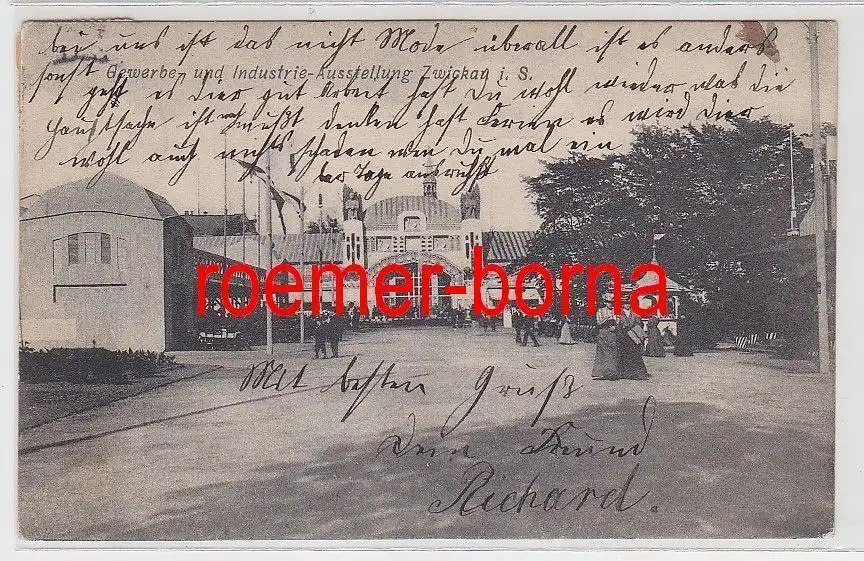 bei uns ist das nicht Mode überall ist es anders
sonst Gewerbe- und Industrie-Ausstellung Zwickau i. S.
geht es dier gut Arbeit hast Du wohl wieder was die
Hauptsache ist mußt denken hast Ferien es wird dier
wohl auch nichts schaden wen Du mal ein
bar Tage ausruhst
roemer-borna
Mit besten Gruß
Dein Freund
Richard.